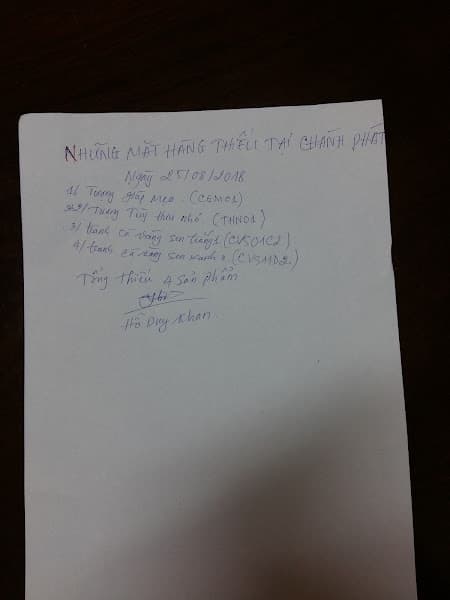 NHỮNG MẶT HÀNG THIẾU TẠI CHÁNH PHÁT
Ngày 25/08/2018
1/ Tượng Giáp Mẹo (CGMC1)
2/ Tượng Tỳ hưu nhỏ (THNO1)
3/ tranh cá vàng sen trắng 1 (CVSO1C2)
4/ tranh cá vàng sen xanh (CVSMD2)
Tổng thiếu 4 sản phẩm
Hồ Duy Khan